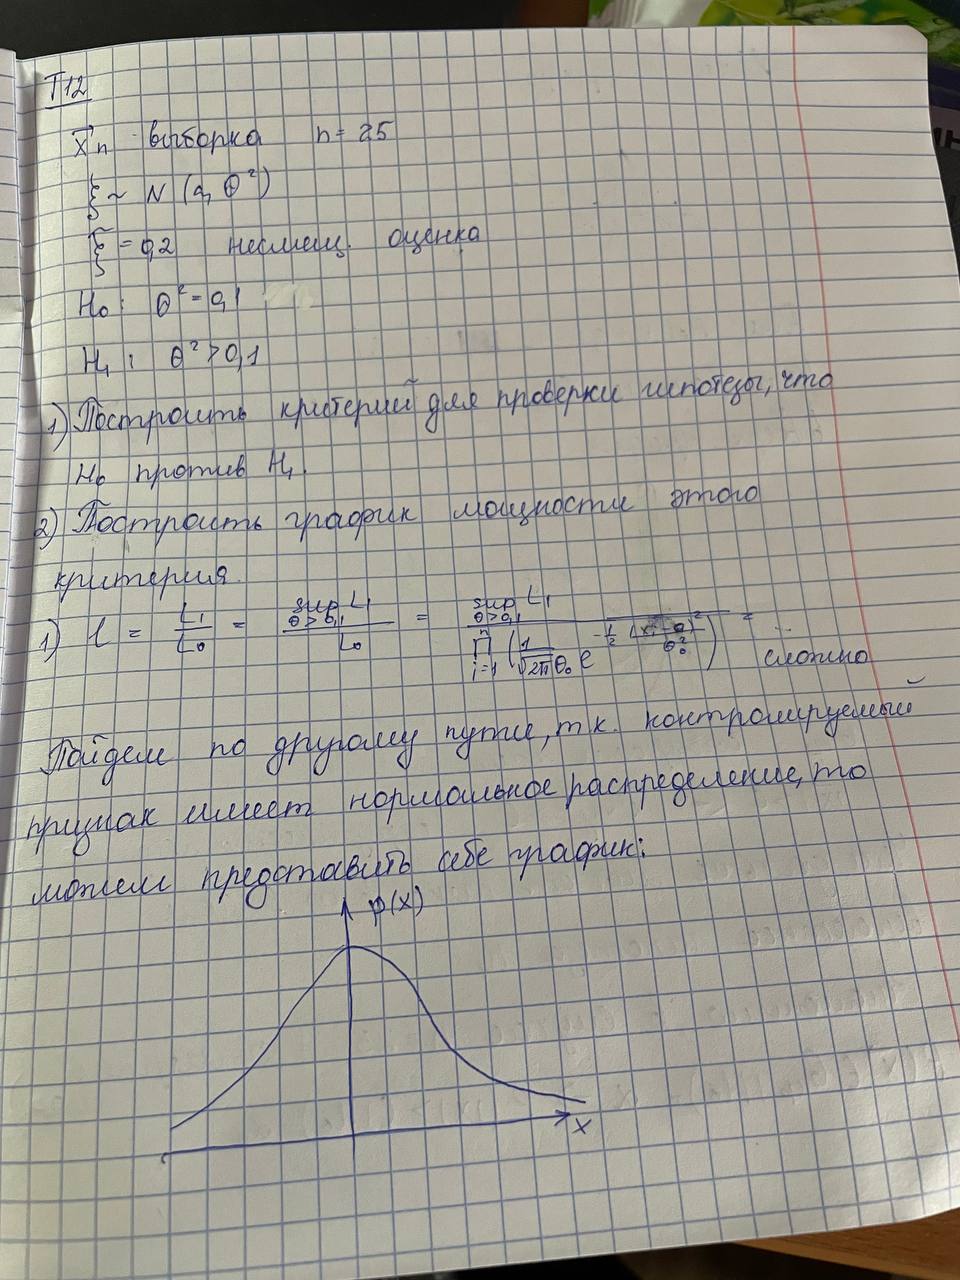 T12
X⃗n выборка n = 25
ξ ~ N (a, θ²)
ξ̃ = 0,2 несмещ. оценка
H₀: θ² = 0,1
H₁: θ² > 0,1
1) Построить критерий для проверки гипотезы, что
H₀ против H₁.
2) Построить график мощности этого
критерия.
1) l = L₁/L₀ = sup L₁ θ>0,1 / L₀ = sup L₁ θ>0,1 / ∏ i=1 n (1/√2π θ₀ e^(-1/2 (xᵢ - a)²/θ₀²)) = ... сложно
Пойдем по другому пути, т.к. контролируемый
признак имеет нормальное распределение, то
можем представить себе график:
p(x)
x